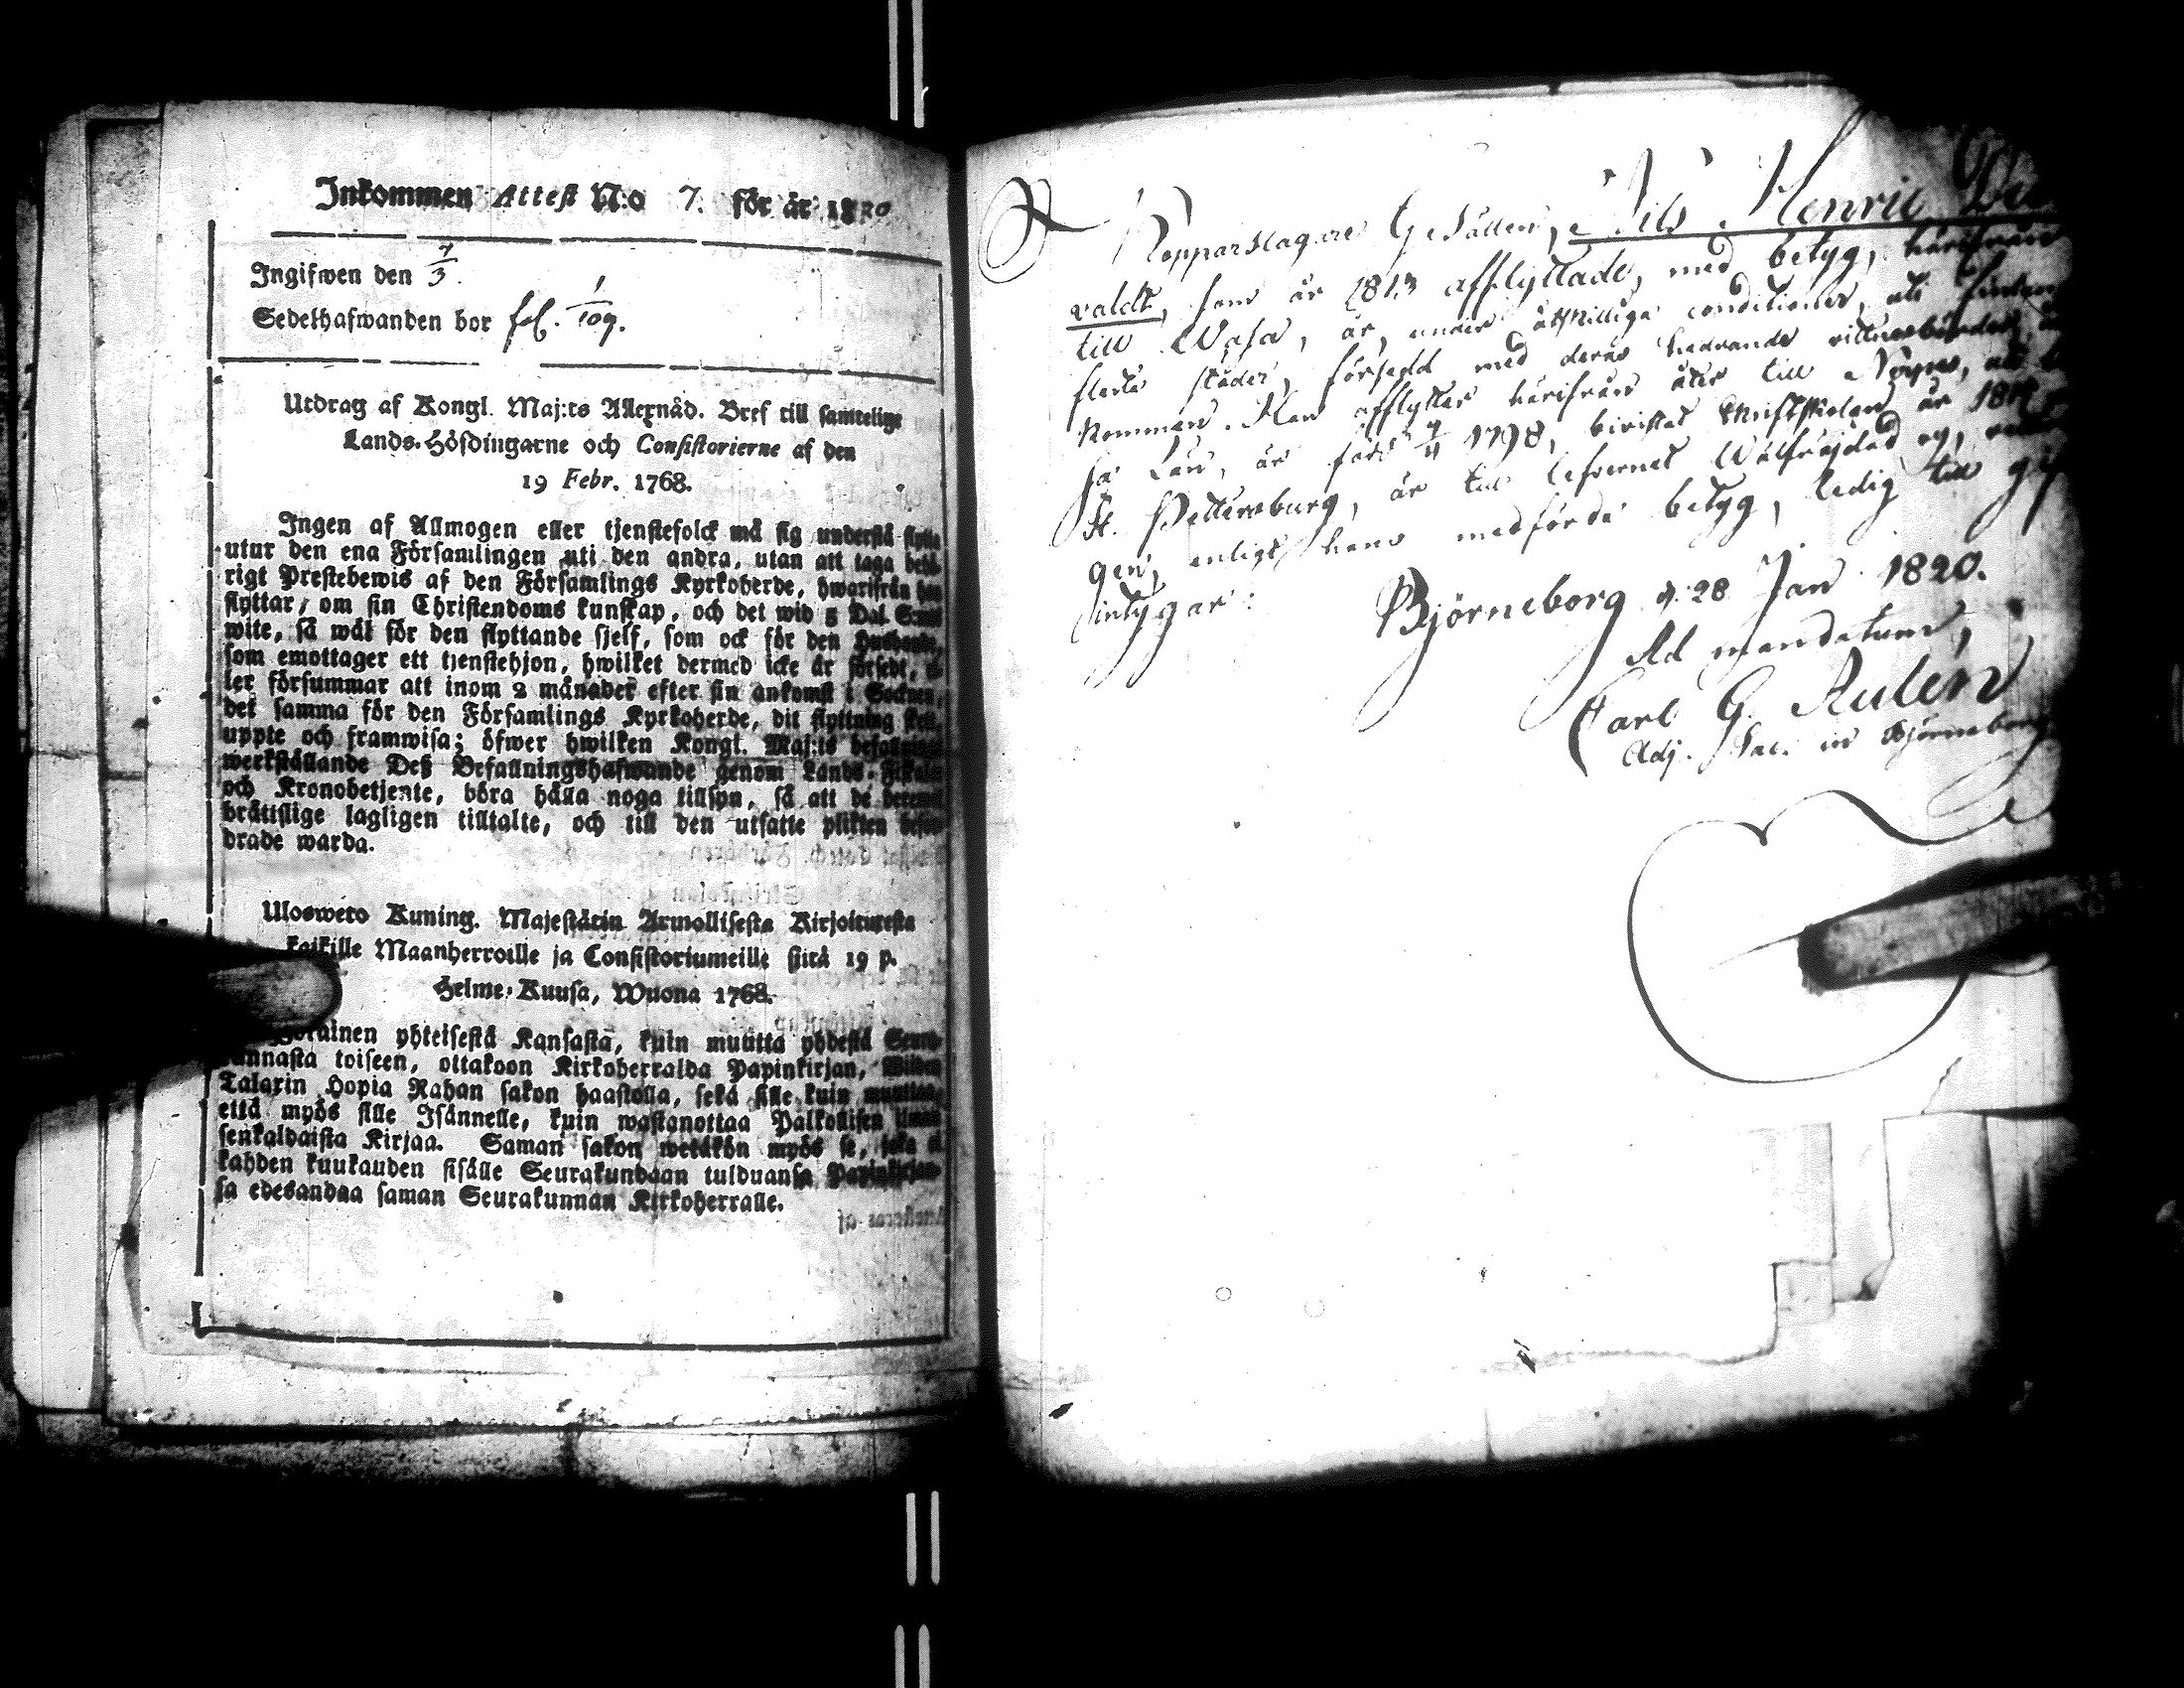 Inkommen Attest N:o 7. för år 1820
Ingifwen den 7/3.
Sedelhafwanden bor fol. 1/109.
Utdrag af Kongl. Maj:ts Allernåd. Bref till samtelige
Lands-Höfdingarne och Consistorierne af den
19 Febr. 1768.
Ingen af Allmogen eller tjenstefolck må sig understå flytta
utur den ena Församlingen uti den andra, utan att taga behö-
rigt Prestebewis af den Församlings Kyrkoherde, hwarifrån han
flyttar, om sin Christendoms kunskap, och det wid 5 Dal. S:mt
wite, så wäl för den flyttande sjelf, som ock för den Husbonde,
som emottager ett tjenstehjon, hwilket dermed icke är försedt, el-
ler försummar att inom 2 månader efter sin ankomst i Socknen,
det samma för den Församlings Kyrkoherde, dit flyttning skett,
uppte och framwisa; öfwer hwilken Kongl. Maj:ts befallnings
werkställande Deß Befallningshafwande genom Lands-Fiskaler
och Kronobetjente, böra hålla noga tillsyn, så att de deremot
bråttslige lagligen tilltalte, och till den utsatte plikten befor-
drade warda.
Ulosweto Kuning. Majestätin Armollisesta Kirjoituresta
kaikille Maanherroille ja Consistoriumeille siitä 19 p.
Helme-Kuusa, Wuona 1768.
yhteisestä Kansasta, kuin muutta yhdestä Seura-
kunnasta toiseen, ottakoon Kirkoherralda Papinkirjan, Wiiden
Talarin Hopia Rahan sakon haastolla, sekä sille kuin muuttaa,
että myös sille Isännelle, kuin wastanottaa Palkollisen ilman
senkaldaista Kirjaa. Saman sakon wetäkön myös se, joka ei
kahden kuukauden sisälle Seurakundaan tulduansa Papinkirjan-
sa edesandaa saman Seurakunnan Kirkoherralle.
Kopparslagare Gesällen, Nils Henric
valdt, som år 1813 afflyttade, med betyg, härifrån
till Wasa, är, under åtskillige conditioner, uti
flerte städer, försedd med deras hedrande vittnesbörder,
kommen. Han afflyttar härifrån åter till
Län, är född 7/4 1798, bevistat Skriftskolan år
St. Pettersburg, är till lefvernet Wälfräjdad og,
gen, enligt hans medförde betyg, ledig till
intygar:
Björneborg d. 28 Jan 1820.
Ad mandatum,
Carl G. Aulén
Adj. Sac. in Björneborg